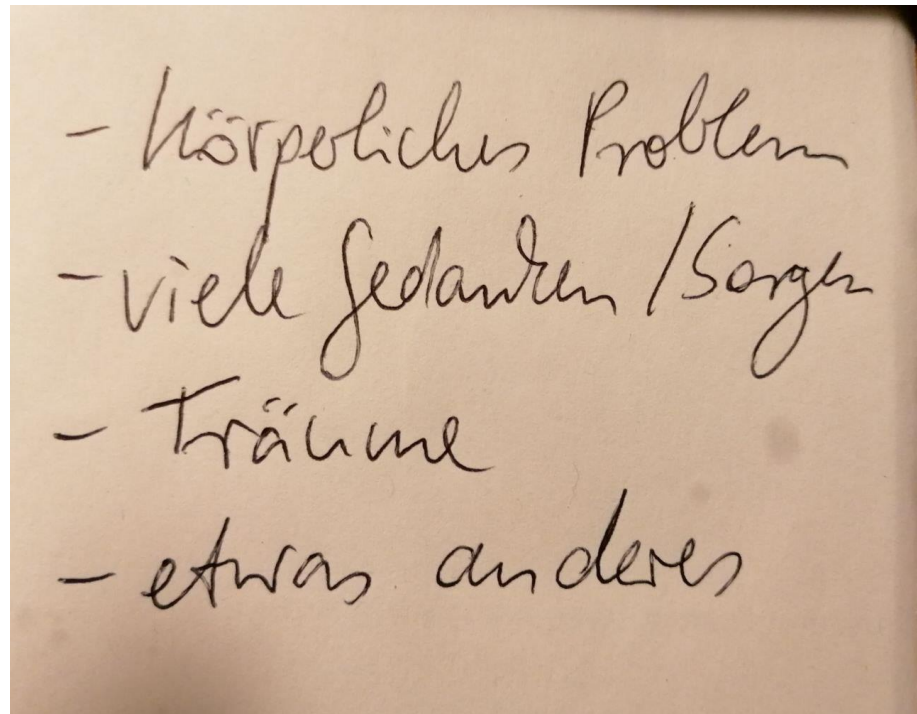 - Körperliches Problem
- viele Gedanken / Sorgen
- Träume
- etwas anderes